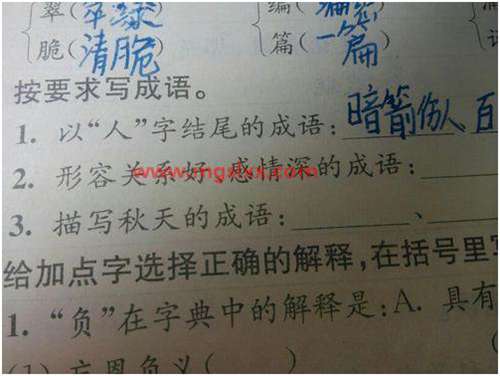 翠(翠绿) 编(
脆(清脆) 篇(一篇)
按要求写成语。
1. 以“人”字结尾的成语:暗箭伤人 百
2. 形容关系好、感情深的成语:
3. 描写秋天的成语: 、
给加点字选择正确的解释,在括号里写
1. “负”在字典中的解释是:A. 具有
(1) 忘恩负义( )